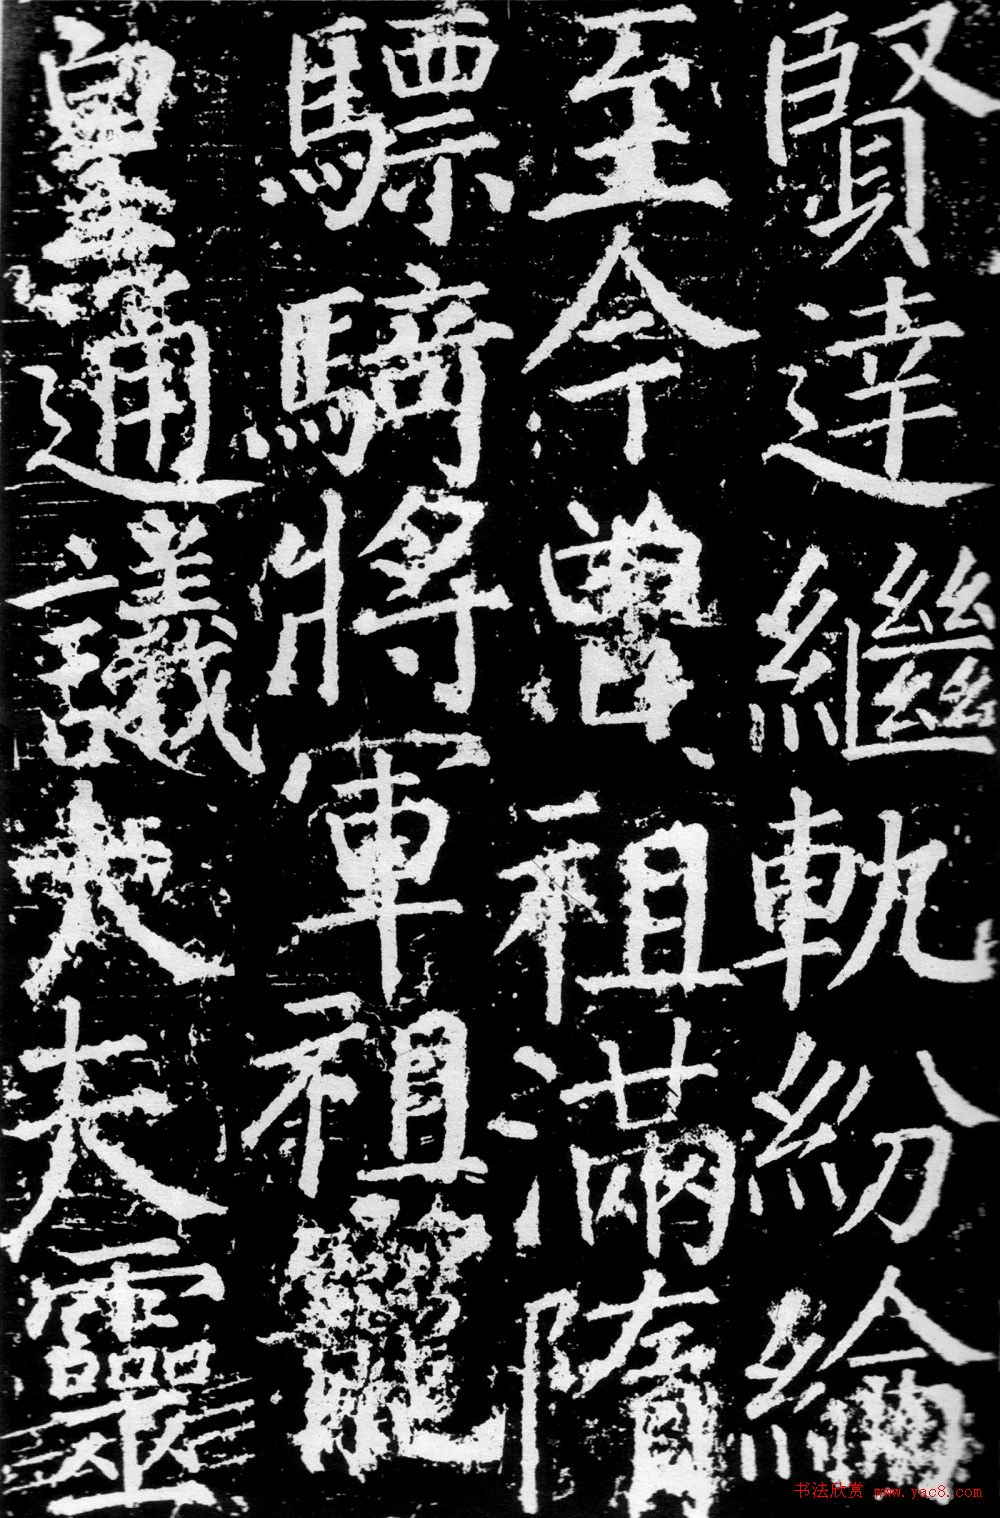 賢達繼軌紛綸
至今曽祖滿隋
驃騎將軍祖寵
皇通議大夫靈
书法欣赏 www.yac8.com